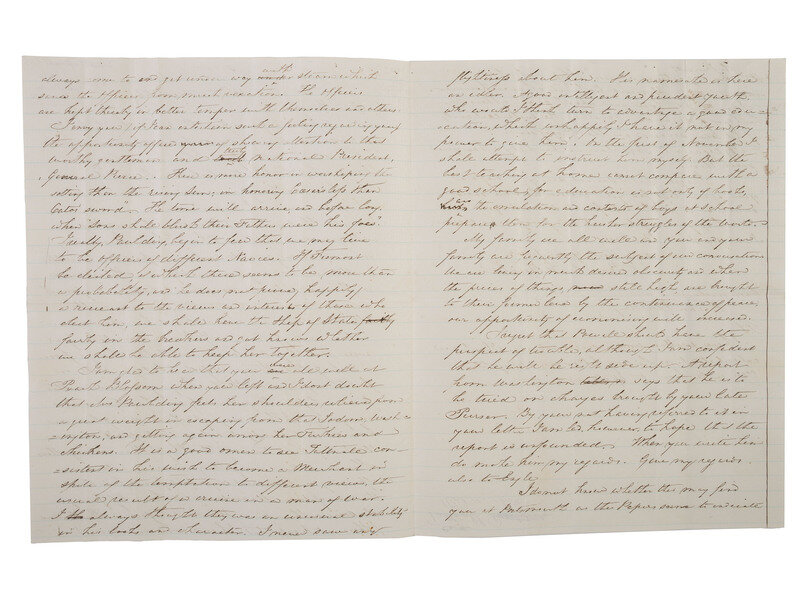 always come to and get under way with steam which
saves the officers from much vexation. The officers
are kept thereby in better temper with themselves and others
I envy you, if I can entertain such a feeling regarding you,
the opportunity of showing attention to that
worthy gentleman and truly national President,
General Pierce. There is more honor in worshiping the
setting than the rising Sun, in honoring Caesar's less than
Cato's sword. The time will arrive, and before long
when "Sons shall blush their Fathers were his foes".
Really, Paulding, I begin to fear that we may live
to be officers of different Navies. If Fremont
be elected, of which there seems to be more than
a probability, and he does not prove, happily
a recusant to the views and interests of those who
elect him, we shall have the Ship of State
fairly in the breakers and God knows whether
we shall be able to keep her together.
I am glad to hear that your were all well at
Peach Blossom when you left and I dont doubt
that Mrs Paulding feels her shoulders relieved from
a great weight in escaping from that Sodom, Wash-
ington, and getting again among her Turkies and
Chickens. It is a good omen to see Tattnall con-
sistent in his wish to become a Merchant in
spite of the temptation to different views, the
usual result of a cruise in a man of war.
I always thought there was an unusual stability
in his looks and character. I never saw any
flightiness about him. His namesake is here
an idler. A good intelligent and prudent youth
who would I think turn to advantage a good edu-
cation, which unhappily I have it not in my
power to give him. In the first of November I
shall attempt to instruct him myself. But the
best teaching at home cannot compare with a
good school, for education is not only of books,
the emulation and contests of boys at school
prepare them for the harsher struggles of the world.
My family are all well and you and your
family are frequently the subject of our conversation
We are living in much desired obscurity and when
the prices of things still high, are brought
to their former level by the continuance of peace,
our opportunity of economising will increase.
I regret that should have the
prospect of trouble, although I am confident
that he will be right side up. A report
from Washington says that he is to
be tried on charges brought by your late
Purser. By your not having referred to it in
your letter I am led, however, to hope that the
report is unfounded. When you write him
do make him my regards. Give my regards
also to
I do not know whether this may find
you at Portsmouth as the Papers seem to indicate